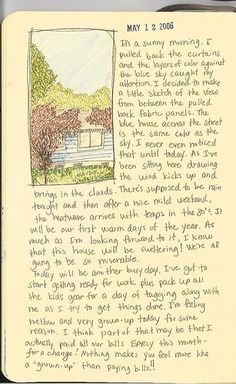 MAY 12 2006
It's a sunny morning. I
pulled back the curtains
and the layers of color against
the blue sky caught my
attention. I decided to make
a little sketch of the view
from between the pulled
back fabric panels. The
blue house across the street
is the same color as the
sky. I never even noticed
that until today. As I've
been sitting here drawing
the wind kicks up and
brings in the clouds. There's supposed to be rain
tonight and then after a nice mild weekend,
the heatwave arrives with temps in the 80's. It
will be our first warm days of the year. As
much as I'm looking forward to it, I know
that this house will be sweltering! We're all
going to be so miserable.
Today will be another busy day. I've got to
start getting ready for work plus pack up all
the kids gear for a day of tagging along with
me as I try to get things done. I'm feeling
mellow and very grown-up today for some
reason. I think part of that may be that I
actually paid all our bills EARLY this month-
for a change! Nothing makes you feel more like
a "grown-up" than paying bills!!